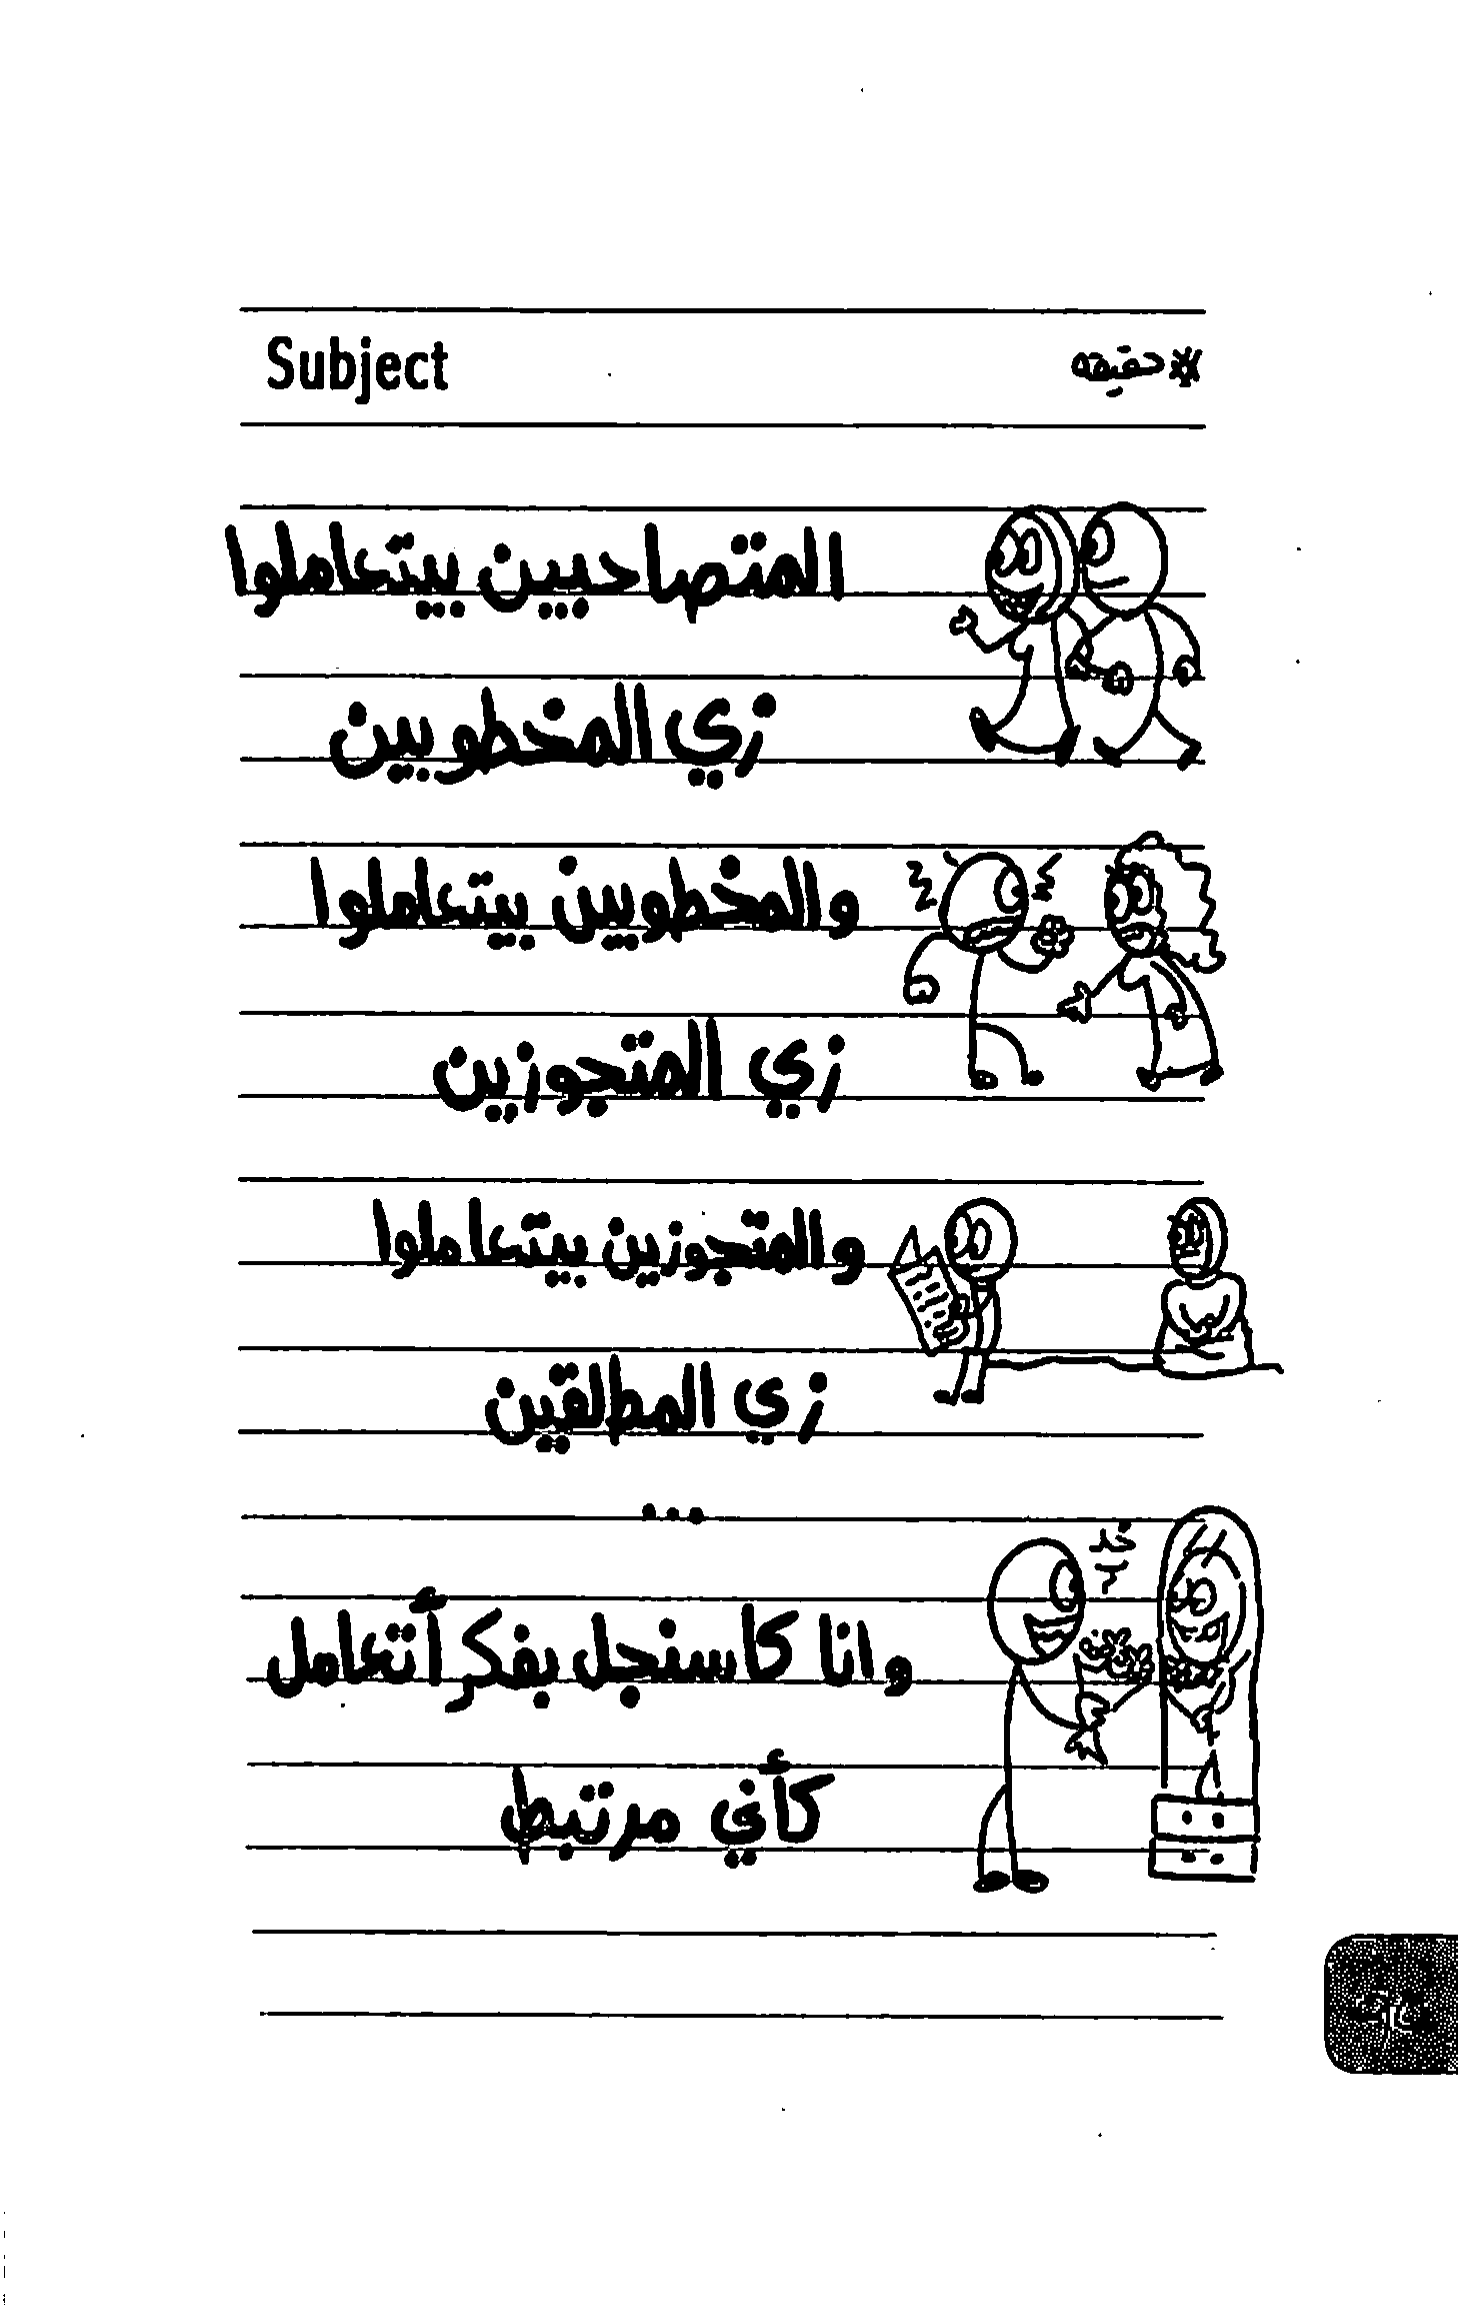 Subject
* حقيقه
المتصاحبين بيتعاملوا
زي المخطوبين
والمخطوبين بيتعاملوا
زي المتجوزين
والمتجوزين بيتعاملوا
زي المطالقين
...
وانا كاسنجل بفكر أتعامل
كأني مرتبط